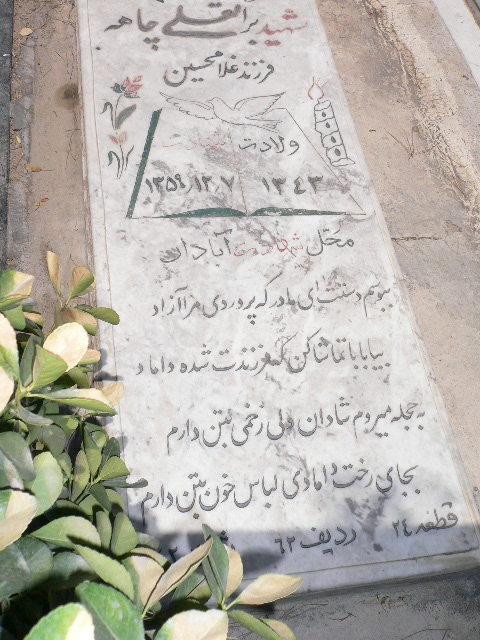 شهید براتقلی چاهه
فرزند غلامحسین
ولادت
۱۳۴۳ ۱۳۵۹/۱۲/۷
محل شهادت آبادان
ببوسم دستت ای مادر که پروردی مرا آزاد
بیا بابا تماشا کن که فرزندت شده داماد
به حجله میروم شادان ولی زخمی بتن دارم
بجای رخت دامادی لباس خون بتن دارم
قطعه ۲٤ ردیف ۶۲